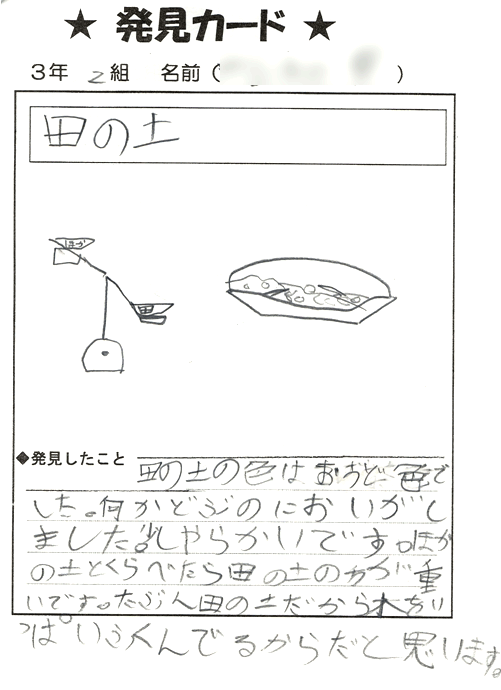 ★ 発見カード ★
3年 2組 名前( )
田の土
ほか
田
◆発見したこと 田の土の色はおうど色で
した。何かどぶのにおいがし
ました。少しやらかいです。ほか
の土とくらべたら田の土の方が重
いです。たぶん田の土だから水をい
っぱいふくんでるからだと思います。